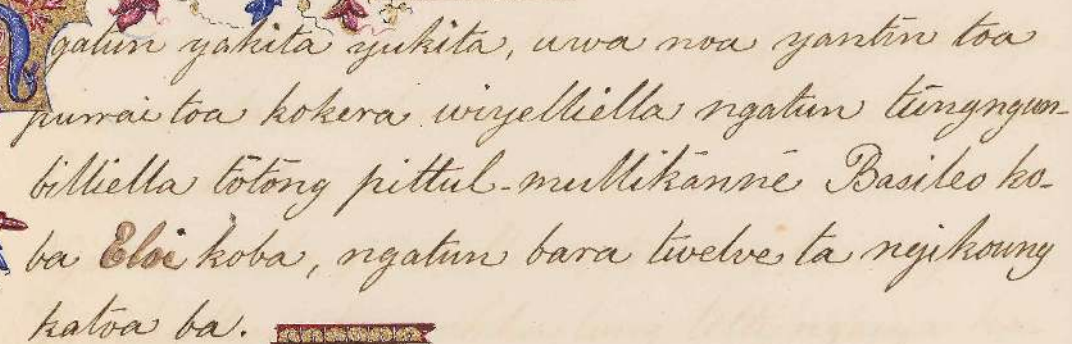 gatun yakita yukita, uwa noa yantin toa
purrai toa kokera wiyelliella ngatun tūngngun-
billiella tōtōng pittul-mullikānnē Basileo ko-
ba Eloi koba, ngatun bara twelve ta ngikoung
katōa ba.